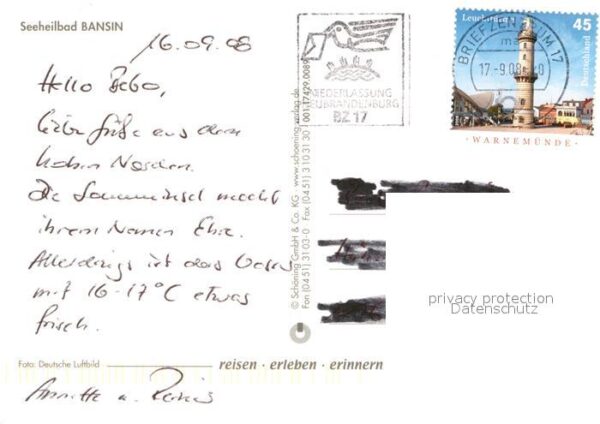 Seeheilbad BANSIN
16.09.08
Hallo Bebo,
liebe Grüße aus dem
hohen Norden.
Die Sonneninsel macht
ihrem Namen Ehre.
Allerdings ist das Wasser
mit 16-17°C etwas
frisch.
Foto: Deutsche Luftbild
reisen · erleben · erinnern
Annette u.
© Schöning GmbH & Co. KG · www.schoening-verlag.de
Fon (04 51) 31 03-0 · Fax (04 51) 3 10 31 30 · 001 17429 0089
NIEDERLASSUNG
NEUBRANDENBURG
BZ 17
BRIEFZENTRUM 17
17.-9.08
Leuchtturm
45
Deutschland
WARNEMÜNDE
privacy protection
Datenschutz